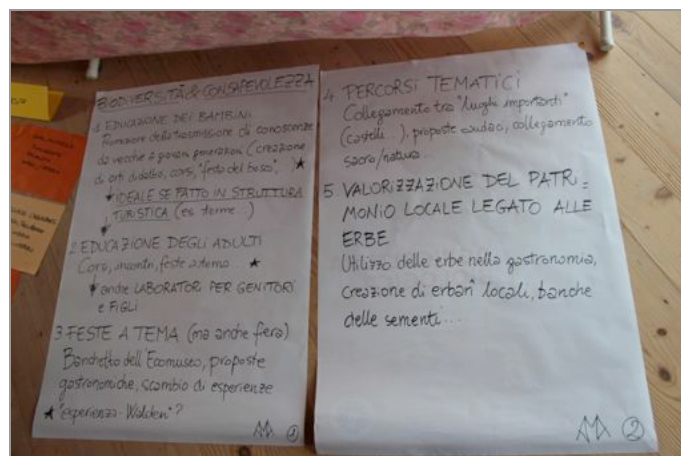 BIODIVERSITÀ & CONSAPEVOLEZZA
1 EDUCAZIONE DEI BAMBINI
Promozione della trasmissione di conoscenze
da vecchie a giovani generazioni (creazione
di orti didattici, corsi, "festa del bosco", ) ★
IDEALE SE FATTO IN STRUTTURA
TURISTICA (es. terme...)
2 EDUCAZIONE DEGLI ADULTI
Corsi, incontri, feste a tema... ★
anche LABORATORI PER GENITORI
e FIGLI
3 FESTE A TEMA (ma anche fiera)
Banchetto dell'Ecomuseo, proposte
gastronomiche, scambio di esperienze
★ "esperienza-Walden"?
1
4 PERCORSI TEMATICI
Collegamento tra "luoghi importanti"
(castelli...), proposte, collegamento
sacro/natura...
5 VALORIZZAZIONE DEL PATRI=
MONIO LOCALE LEGATO ALLE
ERBE
Utilizzo delle erbe nella gastronomia,
creazione di erbari locali, banche
delle sementi...
2